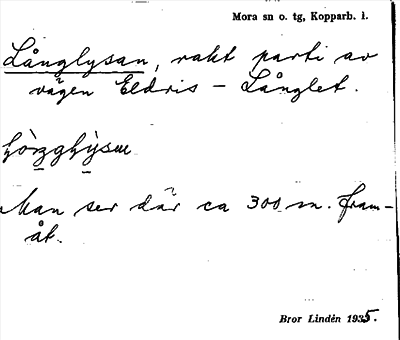 Mora sn o. tg, Kopparb. l.
Långlysan, rakt parti av
vägen Eldris - Långlet.
Man ser där ca 300 m. fram-
åt.
Bror Lindén 1935.